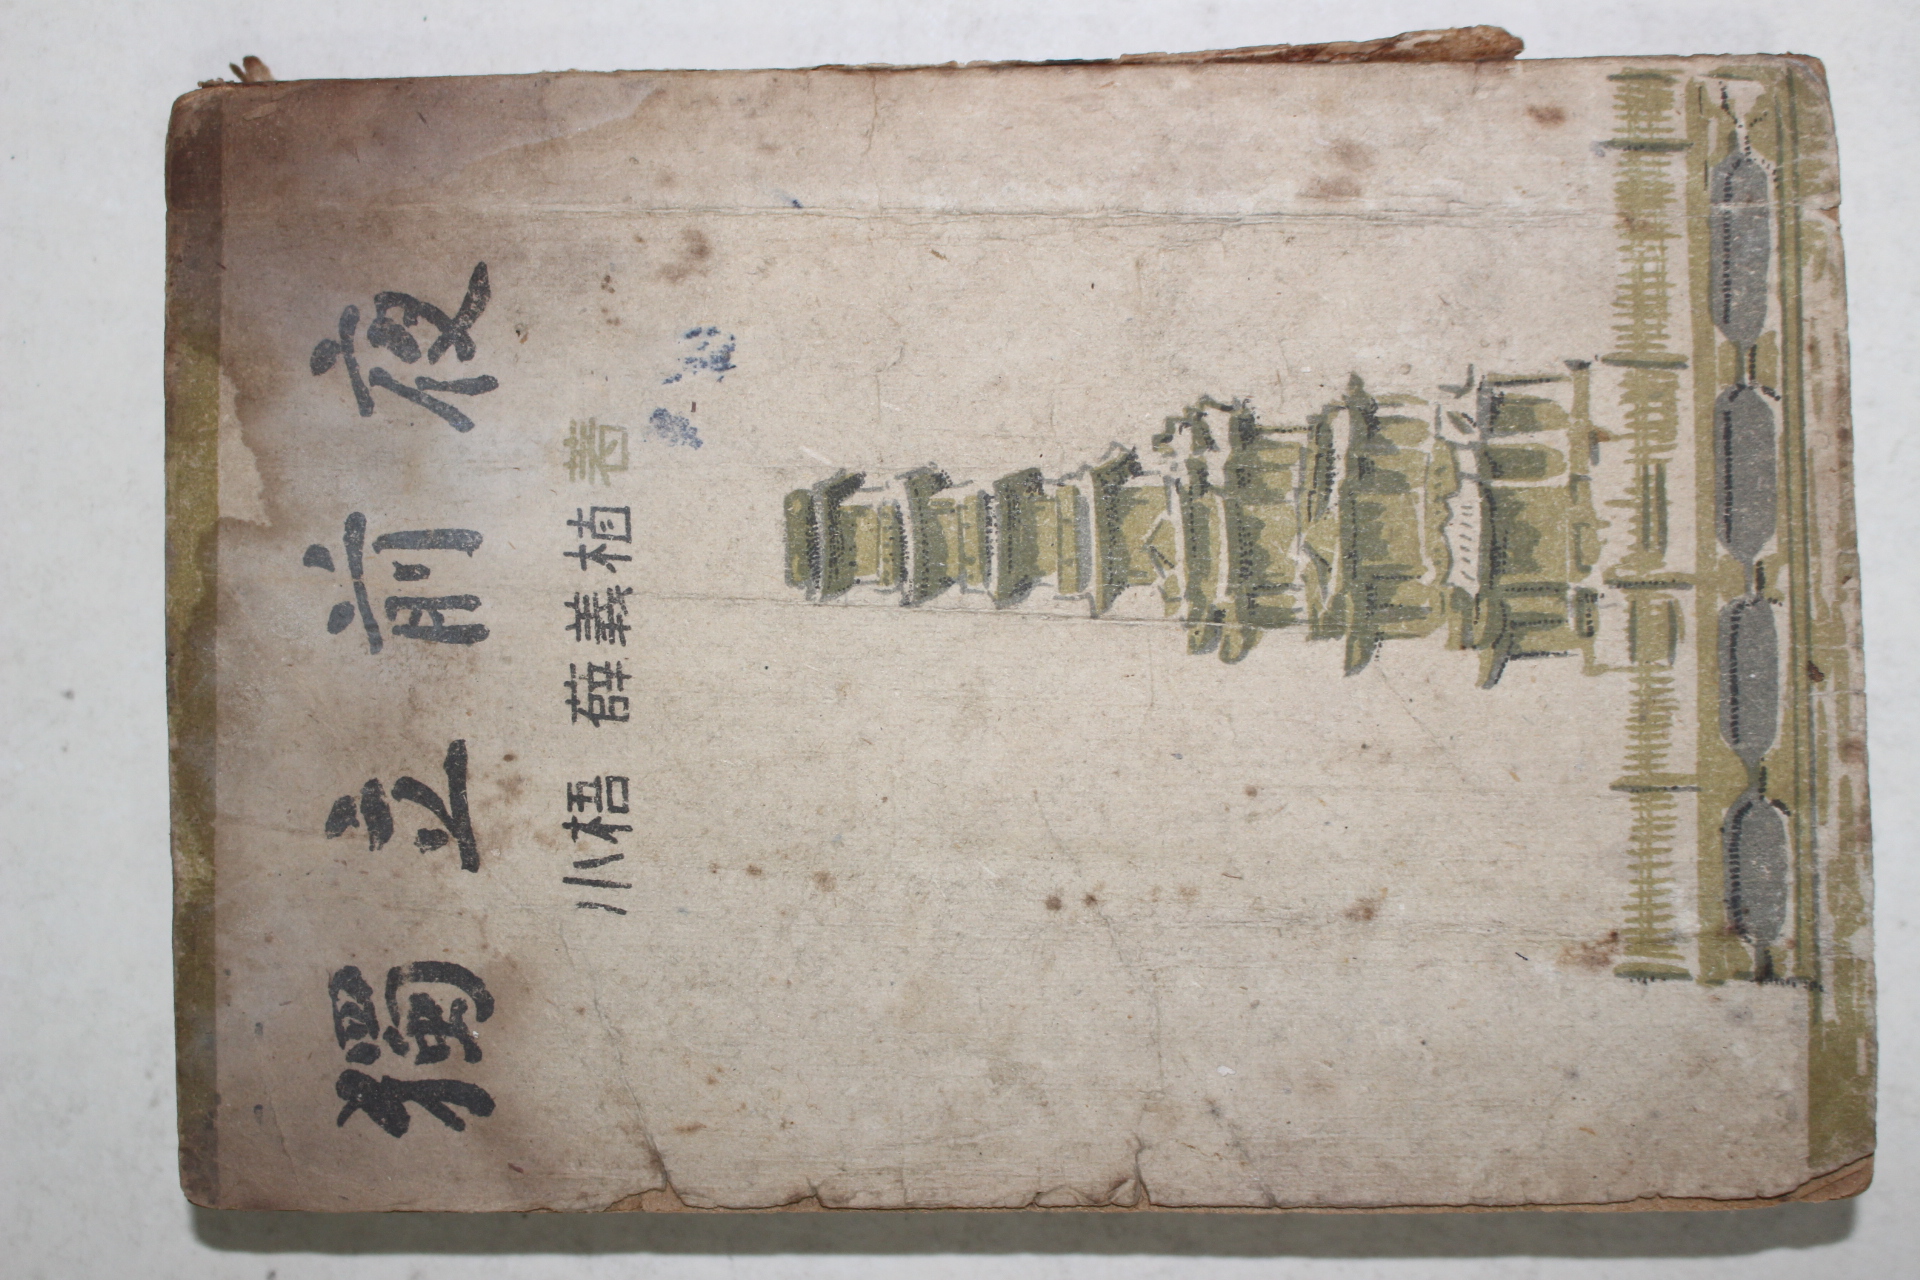 獨立前夜
小梧 薛義植 著